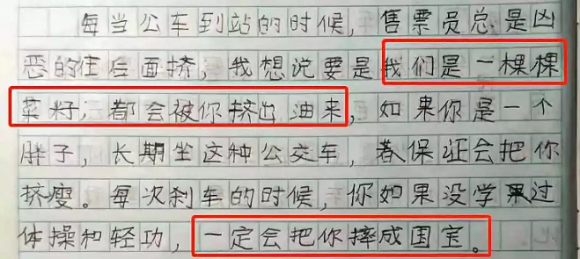 每当公车到站的时候，售票员总是凶
恶的往后面挤，我想说要是我们是一棵棵
菜籽，都会被你挤出油来，如果你是一个
胖子，长期坐这种公交车，春保证会把你
挤瘦。每次刹车的时候，你如果没学果过
体操和轻功，一定会把你摔成国宝。